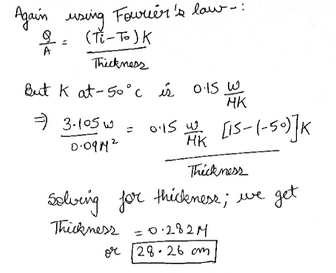 Again using Fourier's law -:
Q/A = (Ti-To)K / Thickness
But K at -50°C is 0.15 W/MK
⇒ 3.105W / 0.09M² = 0.15 W/MK [15-(-50)]K / Thickness
Solving for thickness; we get
Thickness = 0.282M
or 28.26 cm